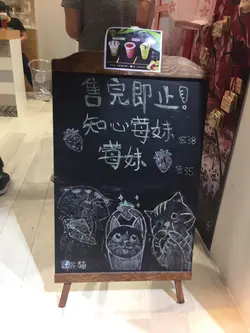 售完即止!
知心莓妹 $38
莓妹 $35